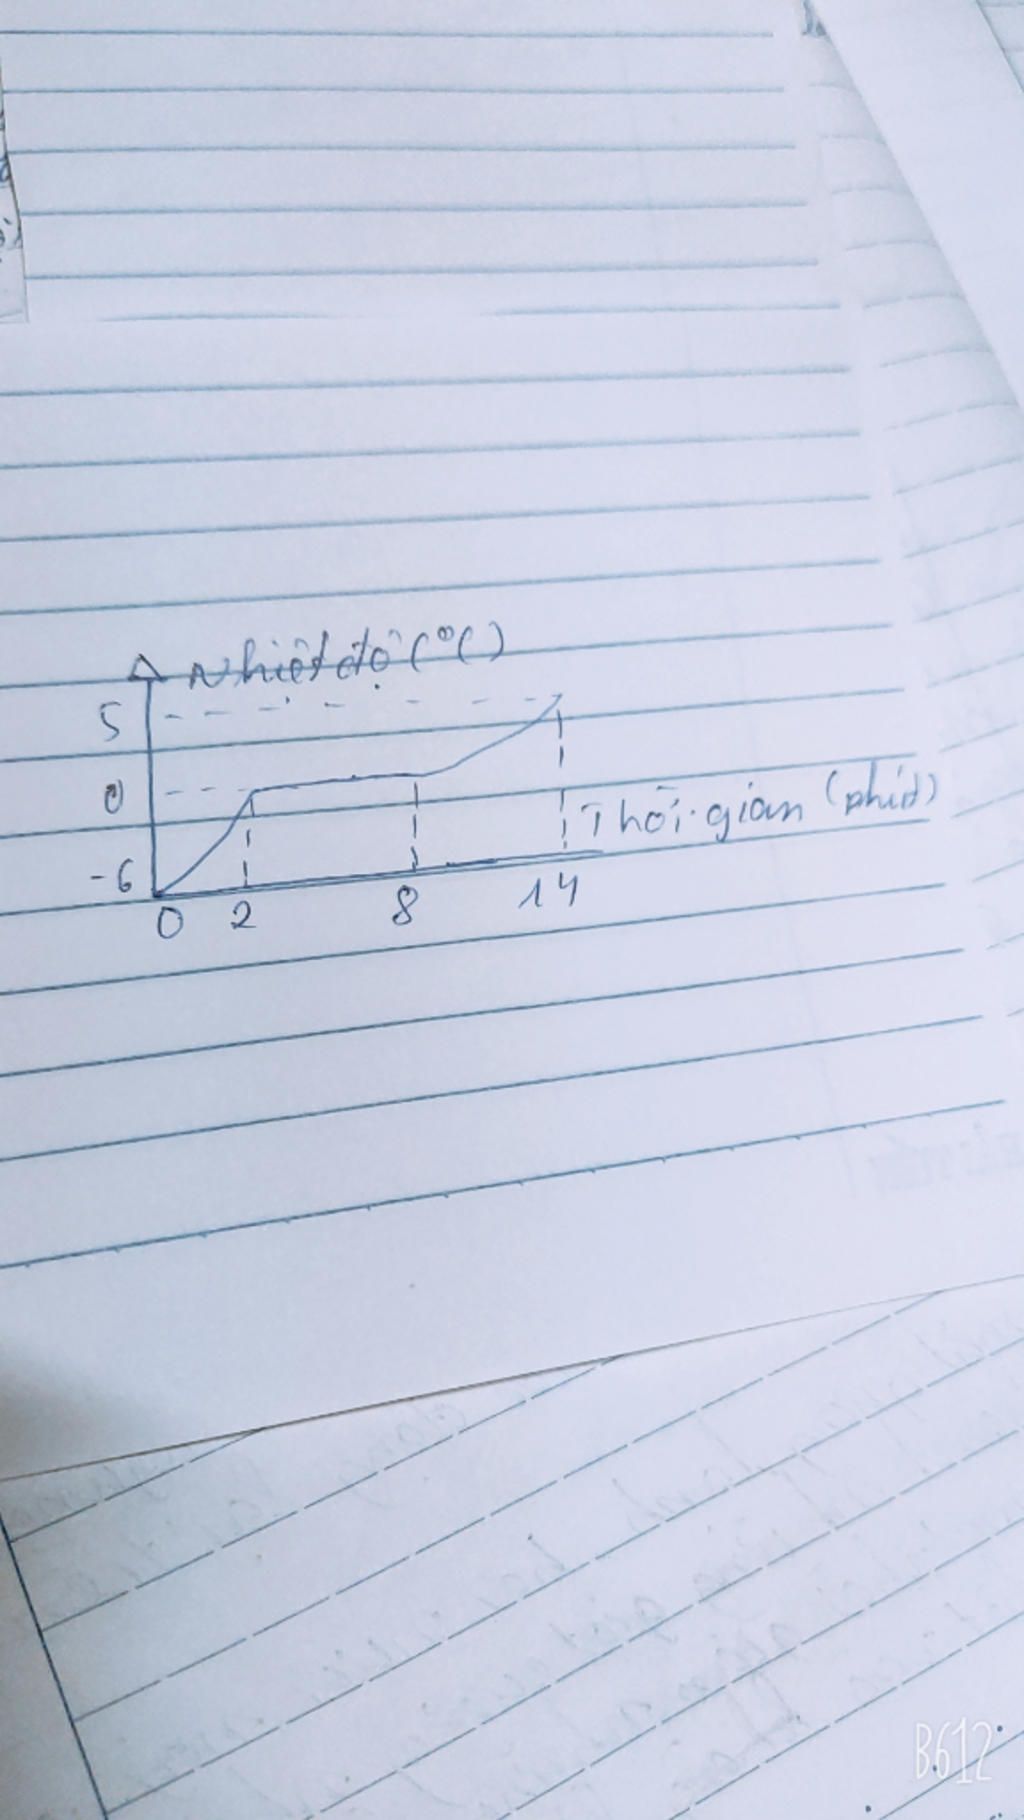 Nhiệt độ (°C)
5
0
Thời gian (phút)
-6
0 2 8 14
B612